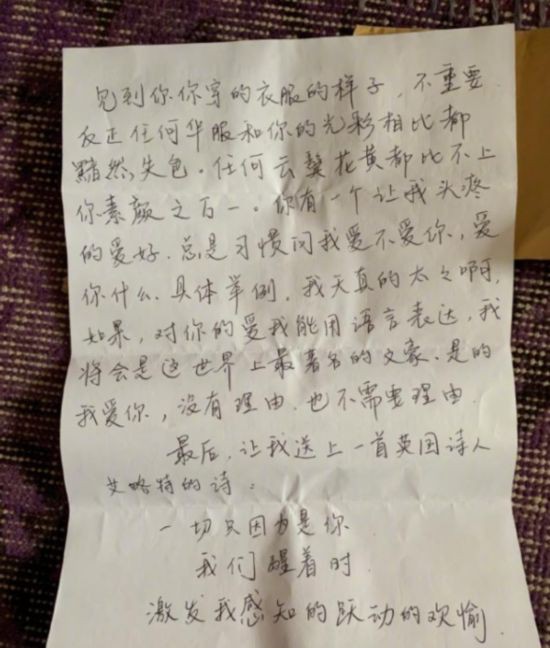 见到你.你穿的衣服的样子,不重要
反正任何华服和你的光彩相比都
黯然失色.任何云鬓花黄都比不上
你素颜之百一.你有一个让我头疼
的爱好.总是习惯问我爱不爱你,爱
你什么.具体举例.我天真的太太啊,
如果,对你的爱我能用语言表达,我
将会是这世界上最著名的文豪.是的
我爱你,没有理由.也不需要理由.
最后,让我送上一首英国诗人
艾略特的诗:
一切只因为是你
我们醒着时.
激发我感知的跃动的欢愉.